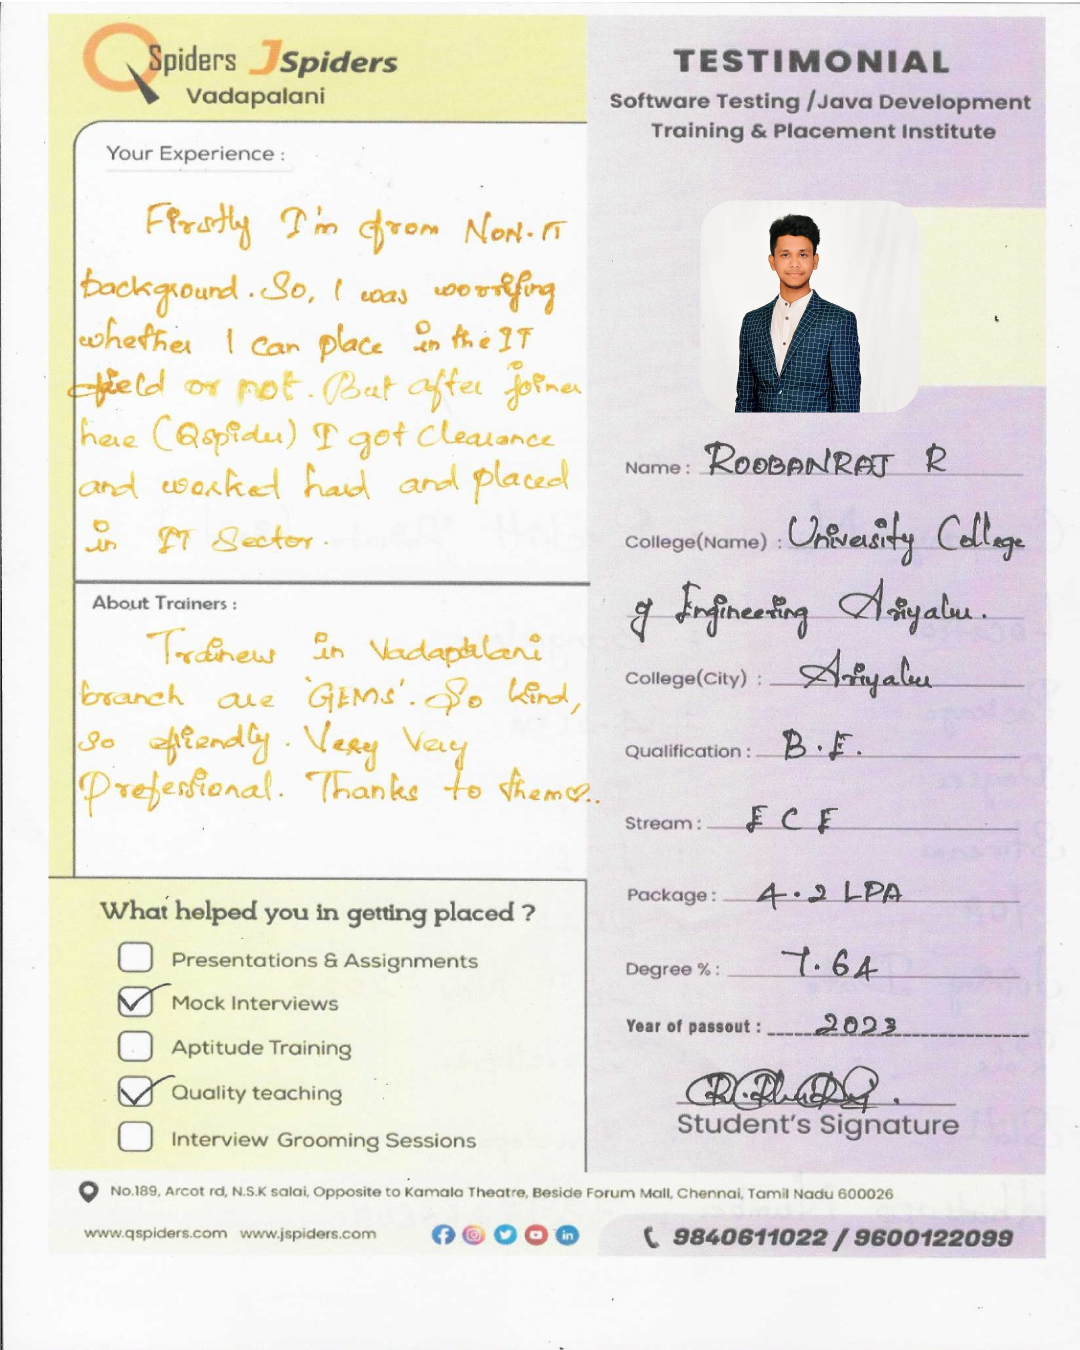 QSpiders JSpiders
Vadapalani
Your Experience :
Firstly I'm from NON-IT
background. So, I was worrying
whether I can place in the IT
field or not. But after joiner
here (Qspider) I got Clearance
and worked hard and placed
in IT Sector.
About Trainers :
Trainers in Vadapalani
branch are 'GEMS'. So kind,
so friendly. Very Very
Professional. Thanks to them♡..
What helped you in getting placed ?
Presentations & Assignments
Mock Interviews
Aptitude Training
Quality teaching
Interview Grooming Sessions
TESTIMONIAL
Software Testing /Java Development
Training & Placement Institute
Name : ROOBANRAJ R
College(Name) : University College
of Engineering Ariyalur.
College(City) : Ariyalur
Qualification : B.E.
Stream : ECE
Package : 4.2 LPA
Degree % : 7.64
Year of passout : 2023
Student's Signature
No.189, Arcot rd, N.S.K salai, Opposite to Kamala Theatre, Beside Forum Mall, Chennai, Tamil Nadu 600026
www.qspiders.com www.jspiders.com
9840611022 / 9600122099